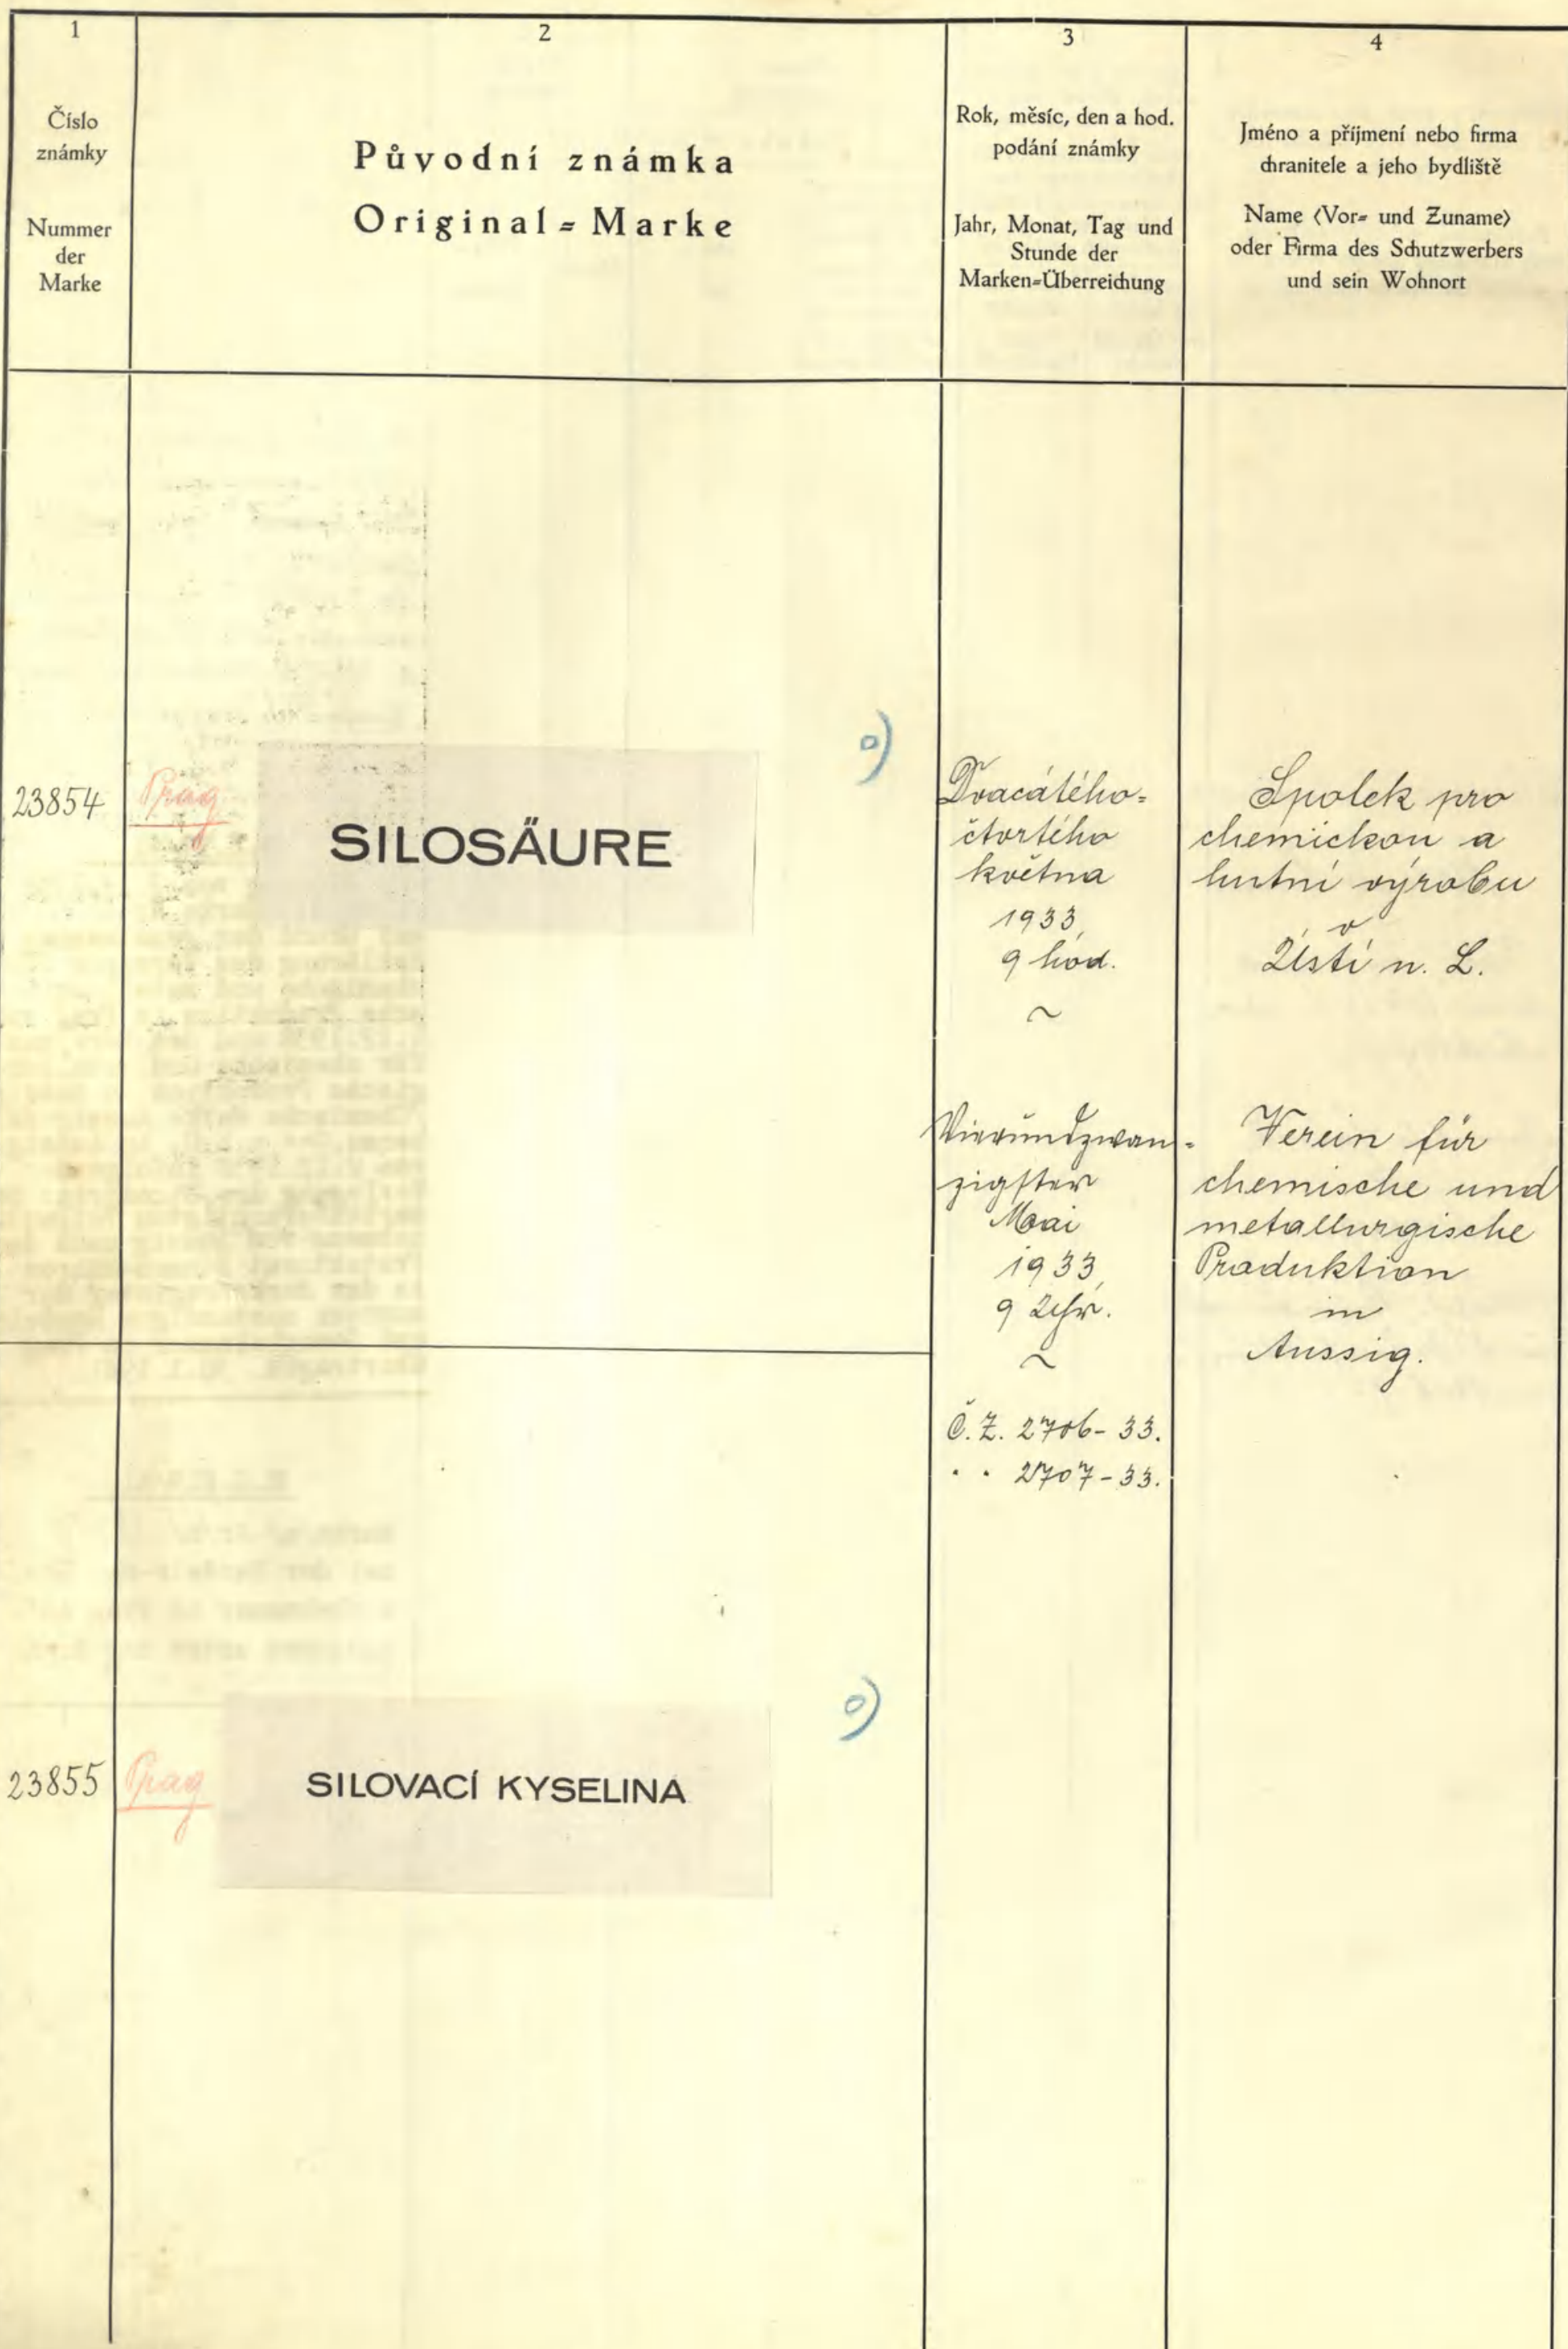 1
Číslo
známky
Nummer
der
Marke
2
Původní známka
Original=Marke
3
Rok, měsíc, den a hod.
podání známky
Jahr, Monat, Tag und
Stunde der
Marken=Überreichung
4
Jméno a příjmení nebo firma
chranitele a jeho bydliště
Name (Vor= und Zuname)
oder Firma des Schutzwerbers
und sein Wohnort
23854
Prag
SILOSÄURE
o)
Dvacátého=
čtvrtého
května
1933,
9 hod.
~
Vierundzwan-
zigster
Mai
1933,
9 Uhr.
~
Č. Z. 2706-33.
" " 2707-33.
Spolek pro
chemickou a
hutní výrobu
v
Ústí n. L.
Verein für
chemische und
metallurgische
Produktion
in
Aussig.
23855
Prag
SILOVACÍ KYSELINA
o)